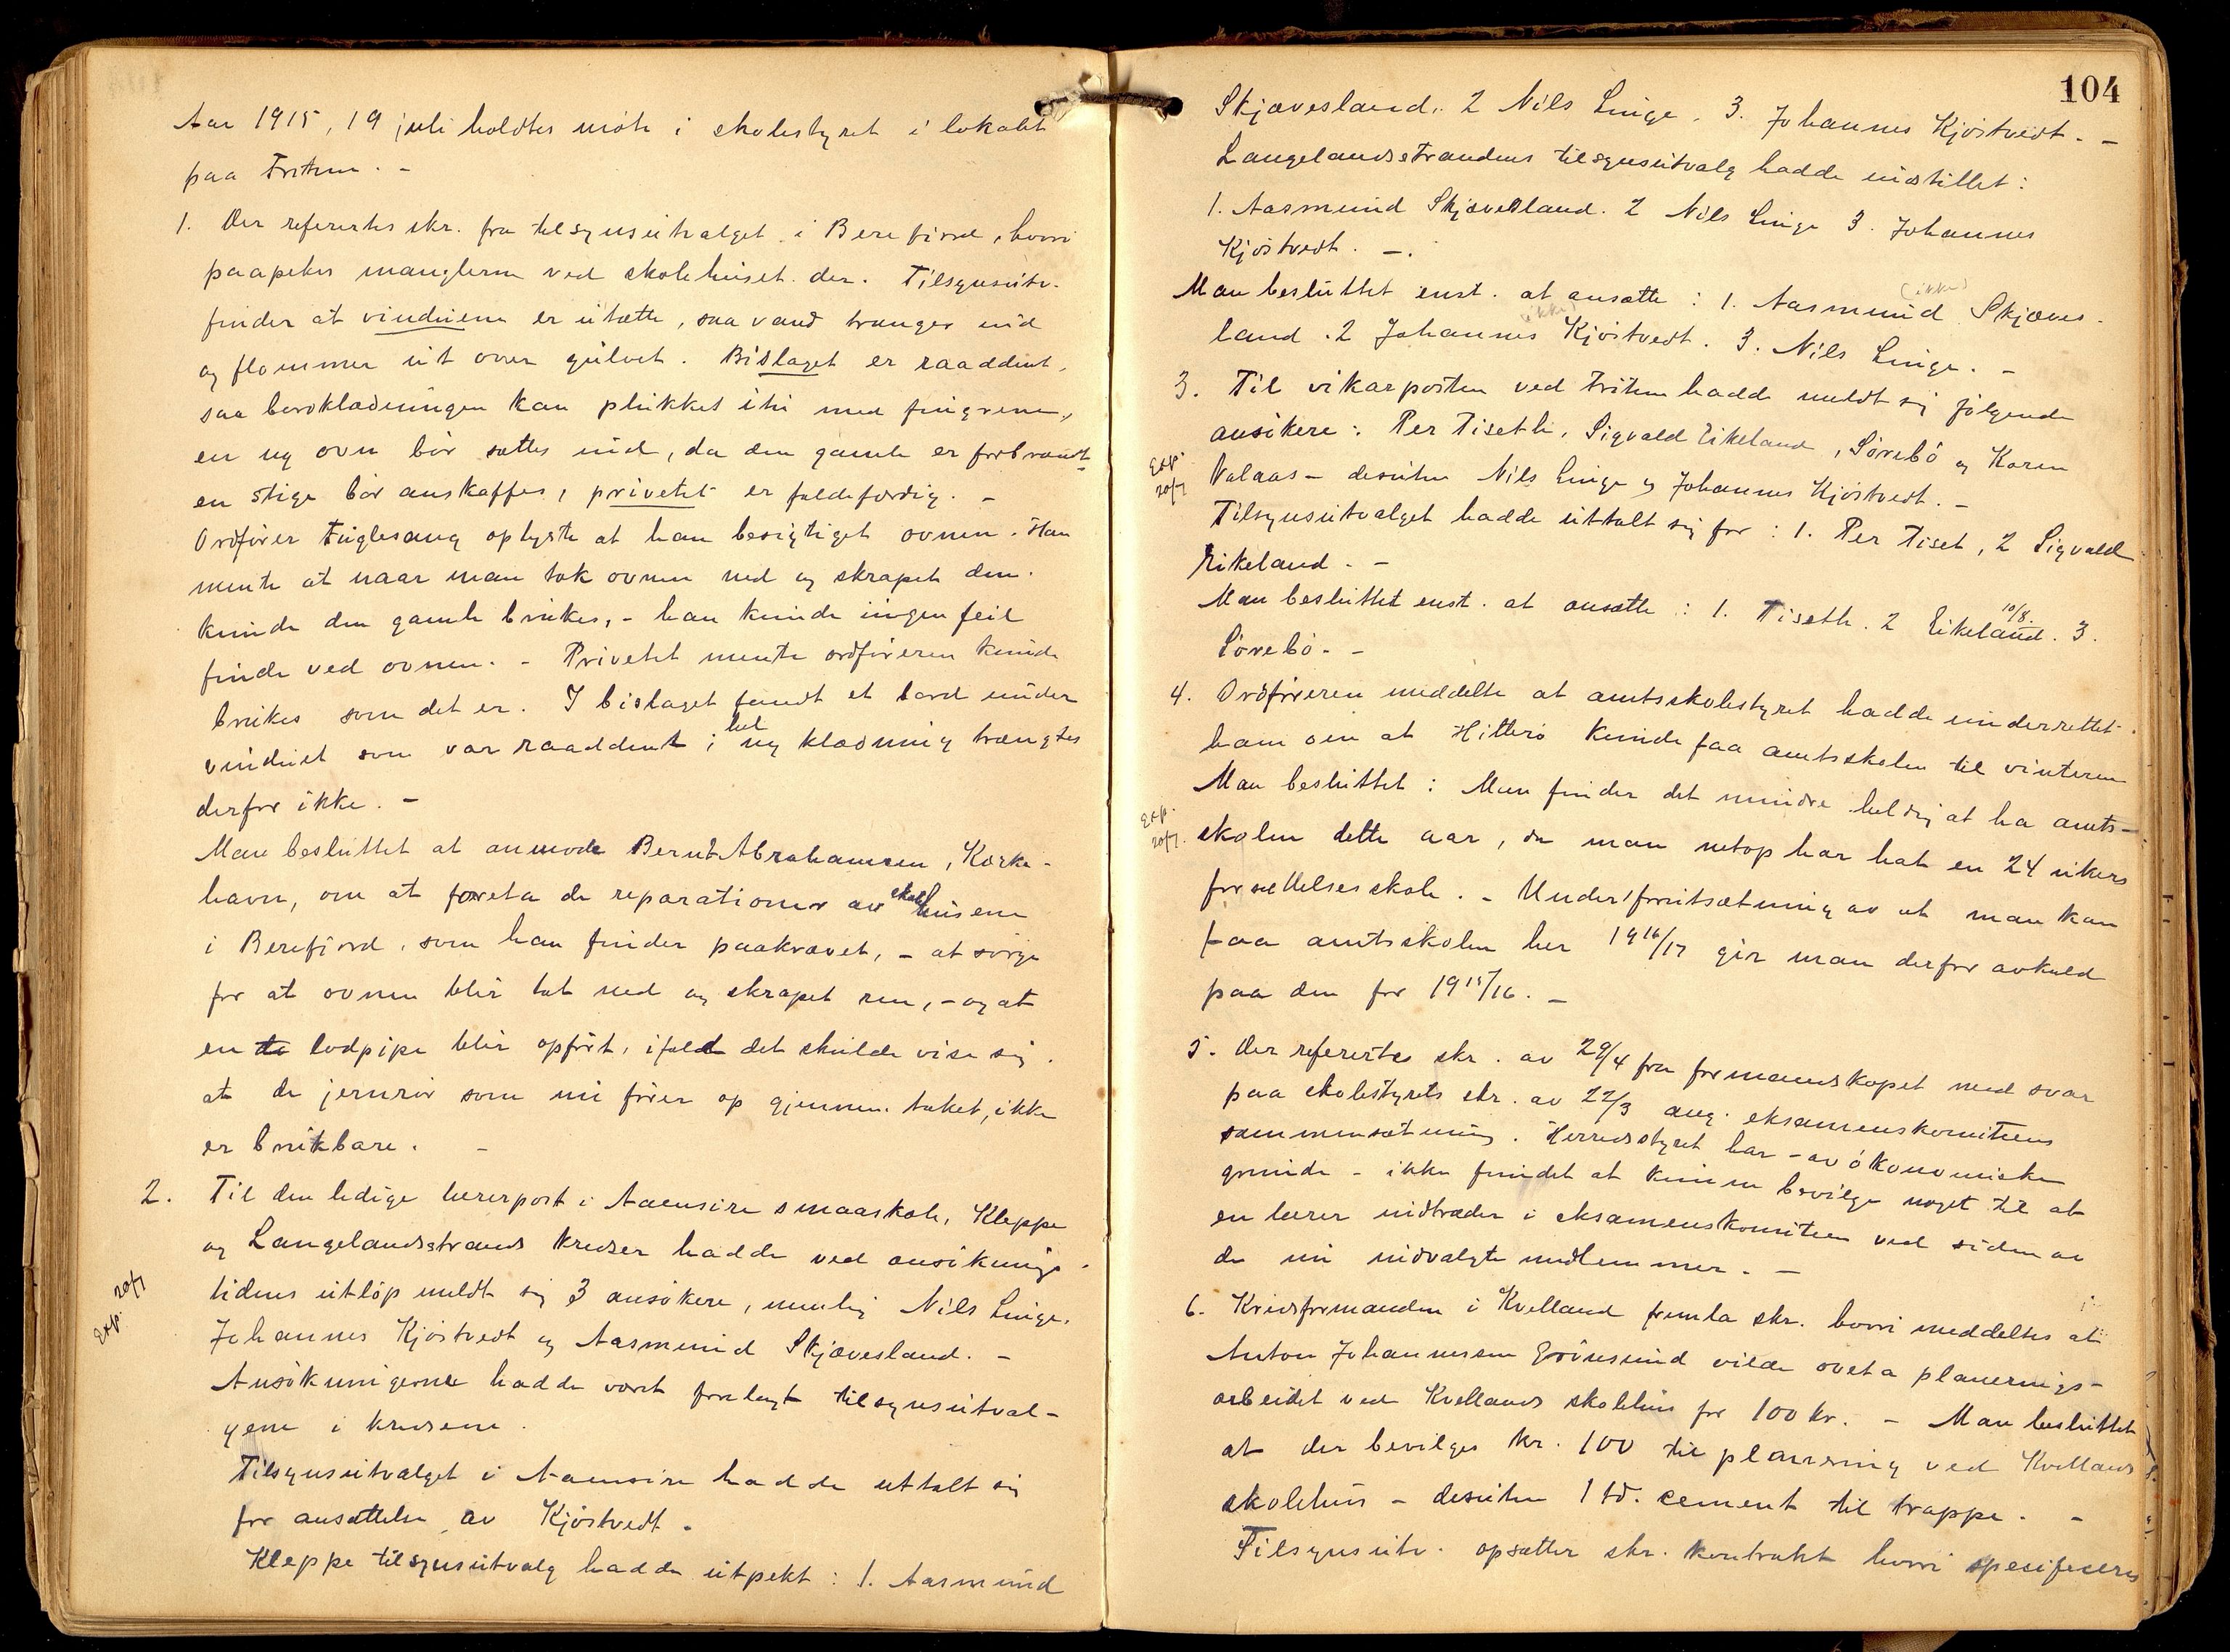 Aar 1915, 19 juli holdtes möte i skolestyret i lokalet
paa Fritun. -
1. Der refertes skr. fra tilsynsutvalget i Berefjord, hvori
paapekes manglerne ved skolehuset der. Tilsynsutv.
finder at vinduene er utætte, saa vand trænger ind
og flommer ut over gulvet. Bislaget er raaddent,
saa bordklædningen kan plukkes itu med fingrene,
en ny ovn bör sættes ind, da den gamle er forbrændt
en stige bör anskaffes, privetet er faldefærdig. -
Ordförer Fuglesang oplyste at han besigtiget ovnen. Han
mente at naar man tok ovnen ned og skrapet den.
kunde den gamle brukes, - han kunde ingen feil
finde ved ovnen. - Privetet mente ordföreren kunde
brukes som det er. I bislaget fandt et bord under
vinduet som var raaddent; hel ny klædning trængtes
derfor ikke. -
Man besluttet at anmode Bernt Abrahamsen, Kirke-
havn, om at foreta de reparationer av skolehusene
i Berefjord, som han finder paakrævet, - at sörge
for at ovnen blir tat ned og skrapet ren, - og at
en lodpipe blir opfört, ifald det skulde vise sig
at de jernrör som nu förer op gjennem taket, ikke
er brukbare. -
2. Til den ledige lærerpost i Aaensire smaaskole, Kleppe
og Langelandsstrands kredser hadde ved ansöknings-
tidens utlöp meldt sig 3 ansökere, nemlig Nils Linge,
Exp. 20/7
Johannes Kjöstvedt og Aasmund Skjævesland. -
Ansökningerne hadde været forelagt tilsynsutval-
gene i kredsene.
Tilsynsutvalget i Aaensire hadde uttalt sig
for ansættelse av Kjöstvedt.
Kleppe tilsynsutvalg hadde utpekt: 1. Aasmund
104
Skjævesland. 2 Nils Linge. 3. Johannes Kjöstvedt. -
Langelandsstrandens tilsynsutvalg hadde indstillet:
1. Aasmund Skjævesland. 2 Nils Linge 3. Johannes
Kjöstvedt. -.
(ikke)
Man besluttet enst. at ansætte: 1. Aasmund Skjæves-
ikke
land. 2 Johannes Kjöstvedt. 3. Nils Linge. -
3. Til vikarposten ved Fritun hadde meldt sig fölgende
ansökere: Per Tiseth, Sigvald Eikeland, Sörebö og Karen
Exp. 20/7
Valaas - desuten Nils Linge og Johannes Kjöstvedt. -
Tilsynsutvalget hadde uttalt sig for: 1. Per Tiset, 2 Sigvald
Eikeland. -
10/8.
Man besluttet enst. at ansætte: 1. Tiseth. 2 Eikeland. 3.
Sörebö. -
4. Ordföreren meddelte at amtsskolestyret hadde underrettet
ham om at Hitterö kunde faa amtsskolen til vinteren
Man besluttet: Man finder det mindre heldig at ha amts-
Exp. 20/7.
skolen dette aar, da man netop har hat en 24 ukers
fortsættelsesskole. - Under forutsætning av at man kan
faa amtsskolen her 1916/17 gir man derfor avkald
paa den for 1915/16. -
5. Der refertes skr. av 29/4 fra formandskapet med svar
paa skolestyrets skr. av 22/3 ang. eksamenskomiteens
sammensætning. Herredsstyret har - av ökonomiske
grunde - ikke fundet at kunne bevilge noget til at
en lærer indtræder i eksamenskomiteen ved siden av
de nu indvalgte medlemmer. -
6. Kredsformanden i Kvelland fremla skr. hvori meddeltes at
Anton Johannessen Grönsund vilde overta planerings-
arbeidet ved Kvellands skolehus for 100 kr. - Man besluttet
at der bevilges kr. 100 til planering ved Kvellands
skolehus - desuten 1 td. cement til trappe. -
Tilsynsutv. opsætter skr. kontrakt hvori specificeres